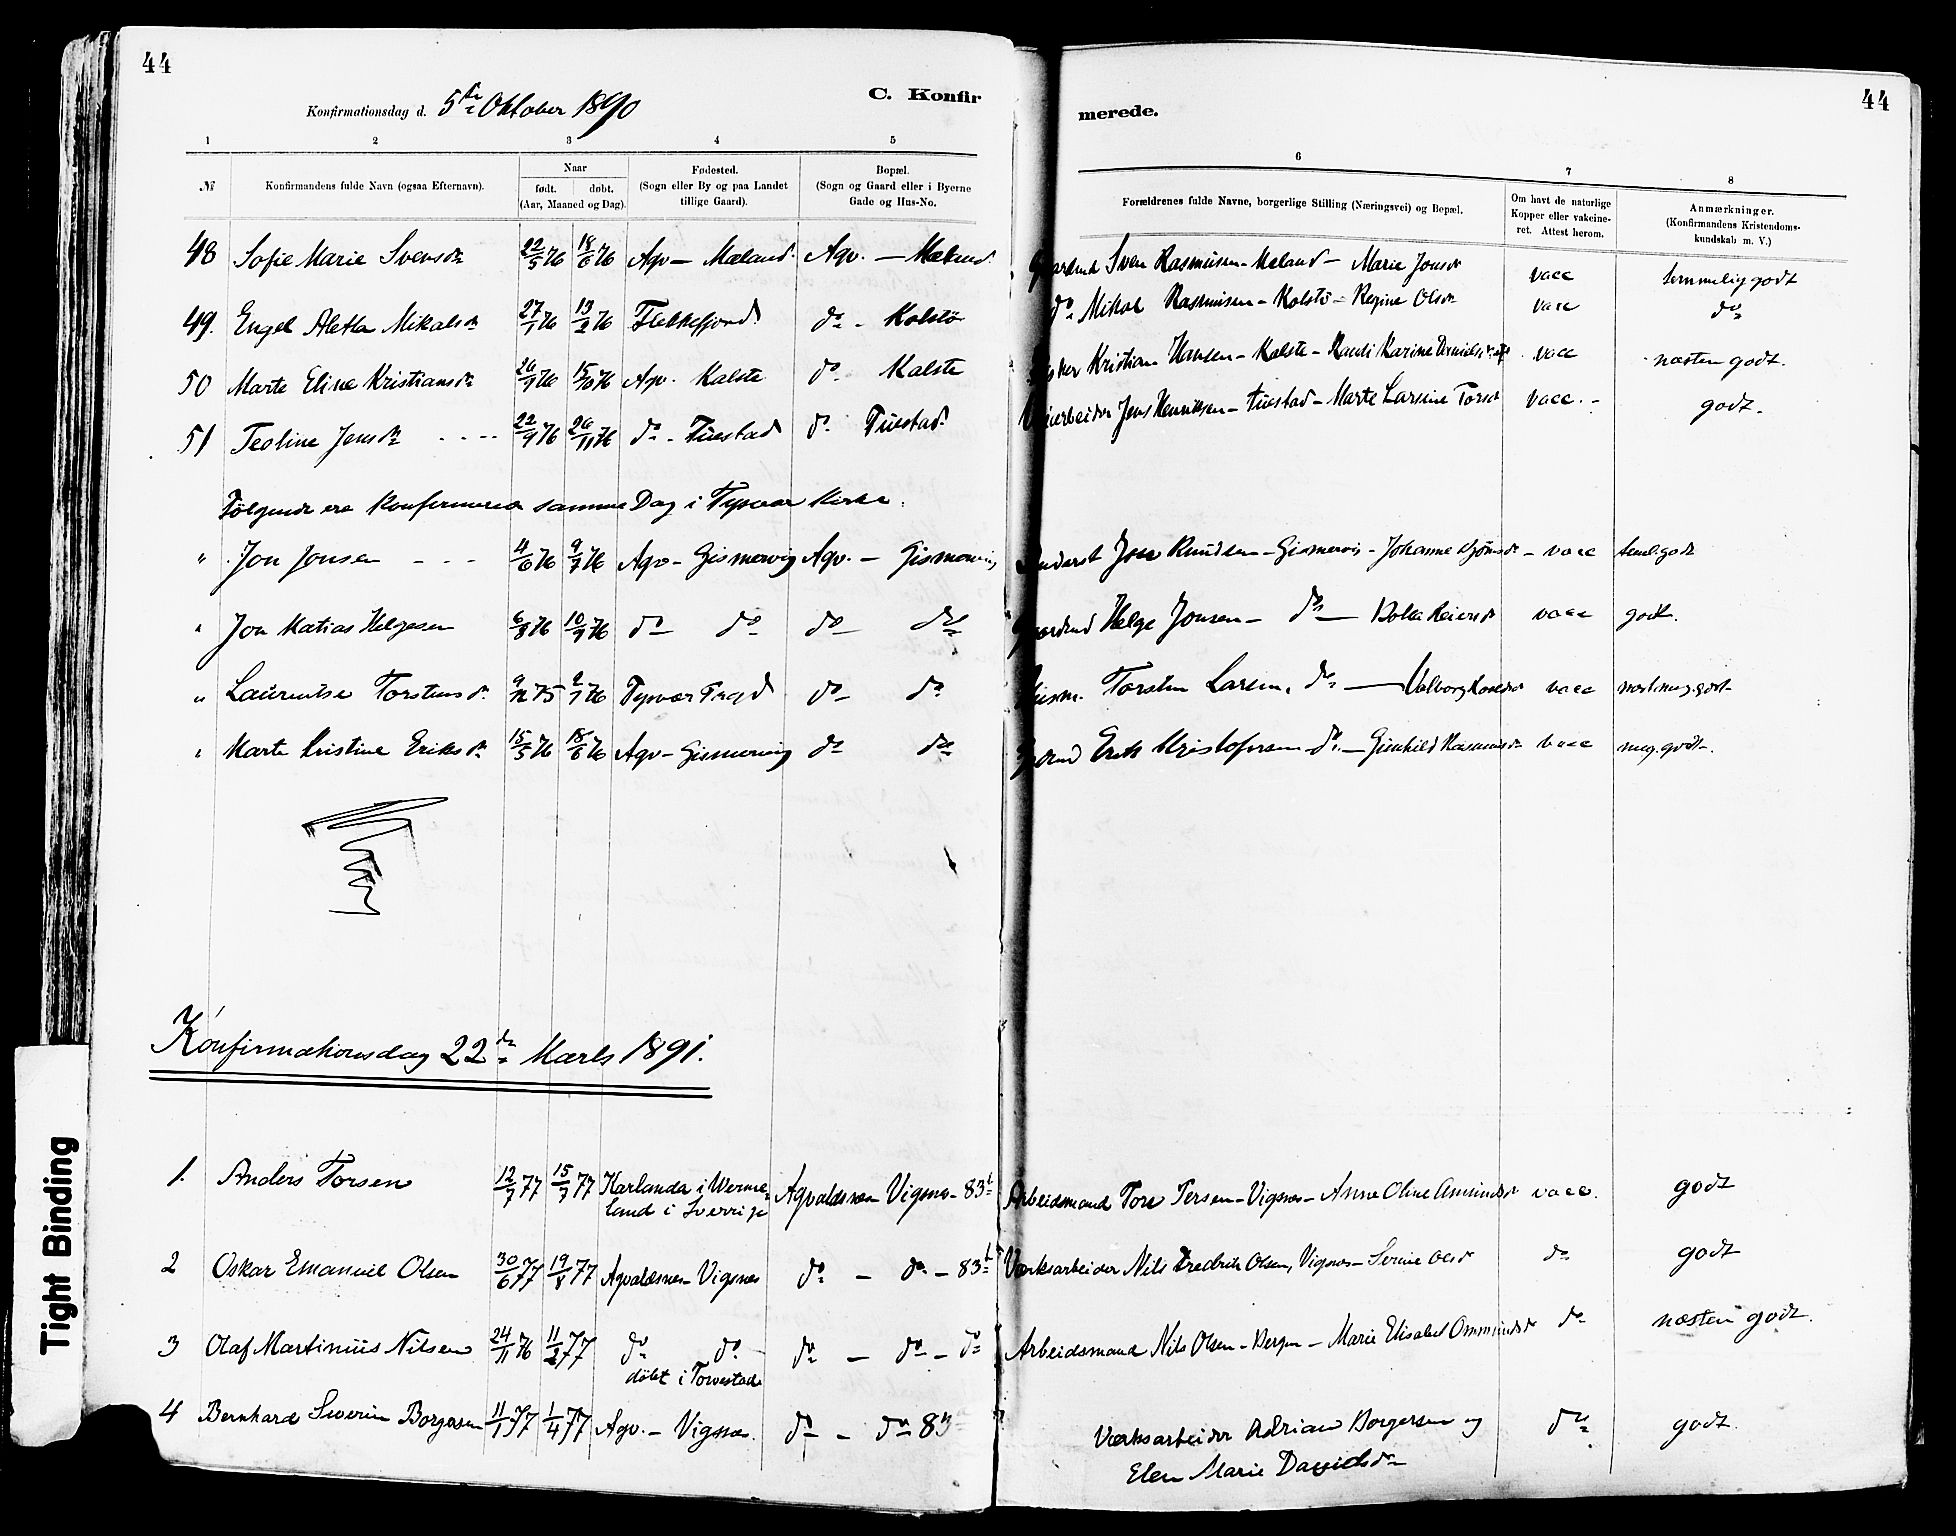 44
Konfirmationsdag d. 5te Oktober 1890
C. Konfir
merede.
44
1 2 3 4 5 6 7 8
№
Konfirmandens fulde Navn (ogsaa Efternavn).
Naar
født. døbt.
(Aar, Maaned og Dag).
Fødested.
(Sogn eller By og paa Landet
tillige Gaard).
Bopæl.
(Sogn og Gaard eller i Byerne
Gade og Hus-No.
Forældrenes fulde Navne, borgerlige Stilling (Næringsvei) og Bopæl.
Om havt de naturlige
Kopper eller vakcine-
ret. Attest herom.
Anmærkninger.
(Konfirmandens Kristendoms-
kundskab m. V.)
48 Sofie Marie Svensdr 22/5 76 18/6 76 Agv – Mæland. Agv. – Mæland. Gaardmd Sven Rasmusen – Mæland – Marie Jonsdr vacc temmelig godt
49. Engel Aletta Mikalsdr 27/1 76 13/2 76 Flekkefjord do – Kolstø do Mikal Rasmusen – Kolstø – Regine Olsdr vacc do
50 Marte Eline Kristiansdr 26/9 76 15/10 76 Agv. Kalstø do Kalstø Kristian Hansen – Kalstø – Karine vacc næsten godt.
51 Teoline Jensdr 22/9 76 26/11 76 do – Tuestad do Tuestad Jens Henriksen – Tuestad – Marte Larsine Torsdr vacc. – godt.
Følgende ere Konfirmerede samme Dag i Tysvær Kirke.
" Jon Jonsen 4/6 76 9/7 76 Agv – Gismervig Agv. – Gismervig Jon Knudsen – Gismervig – Johanne – vacc teml. godt
" Jon Matias Helgesen 6/8 76 10/9 76 do do do do Gaardmd Helge Jonsen – do – vacc godt.
" Laurentse Torstensdr 9/12 75 2/1 76 Tysvær do do Husm. Torsten Larsen, do – Valborg vacc næst. meg. godt –
" Marte Kristine Eriksdr 15/5 76 18/6 76 Agv – Gismervig do do Erik Kristofersen do – Gunhild Rasmusdr vacc meg. godt –.
Konfirmationsdag 22de Marts 1891.
1. Anders Torsen 12/7 77 15/7 77 Karlanda i Werme-
land i Sverrige Agvaldsnes – Vigsnes – 83 b Arbeidsmand Tore Tersen – Vigsnes – Anne Oline Amundsdr vacc. godt
2 Oskar Emanuel Olsen 30/6 77 19/8 77 Agvaldsnes – Vigsnes do – do – 83 b Værksarbeider Nils Fredrik Olsen, Vigsnes – Serine Olsdr do godt
3 Olaf Martinius Nilsen 24/11 76 11/2 77 do do
døbt i Torvestad do – do – do Arbeidsmand Nils Olsen – Bergen – Marie Elisabet Ommundsdr do næsten godt.
4 Bernhard Severin Borgersen 11/1 77 1/4 77 Agv. – Vigsnes. do – do 83 Værksarbeider Adrian Borgersen og
Elen Marie Davidsdr do godt.
Tight Binding